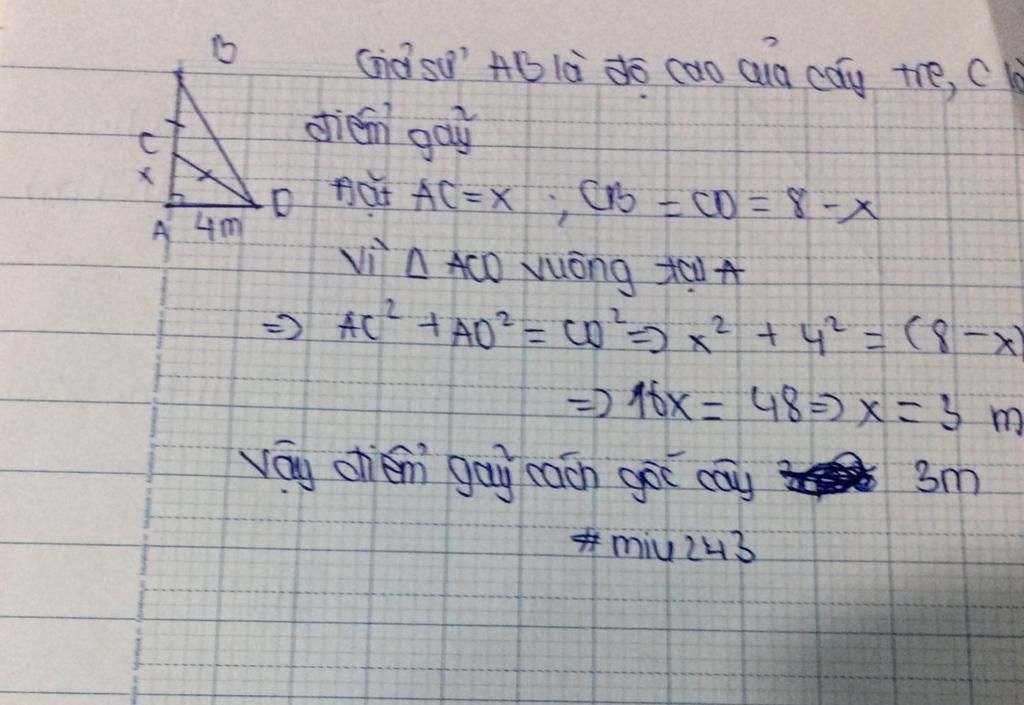 B
Giả sử AB là độ cao của cây tre, C là
điểm gãy
C
x
Đặt AC = x ; CB = CD = 8 - x
D
A 4m
Vì Δ ACD vuông tại A
=> AC² + AD² = CD² => x² + 4² = (8 - x)
=> 16x = 48 => x = 3 m
Vậy điểm gãy cách gốc cây 3m
#miu243